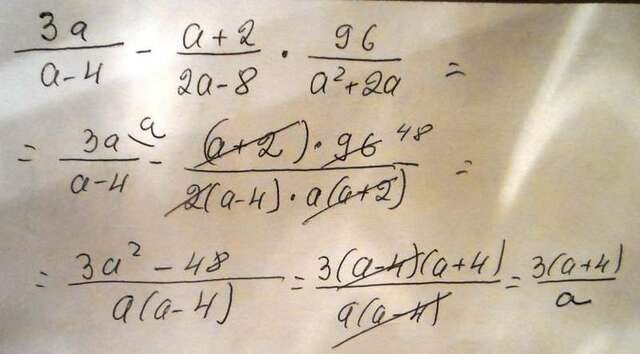 3a/(a-4) - (a+2)/(2a-8) · 96/(a²+2a) =
= 3a\a/(a-4) - (a+2)·96 48/(2(a-4)·a(a+2)) =
= (3a²-48)/(a(a-4)) = 3(a-4)(a+4)/(a(a-4)) = 3(a+4)/a